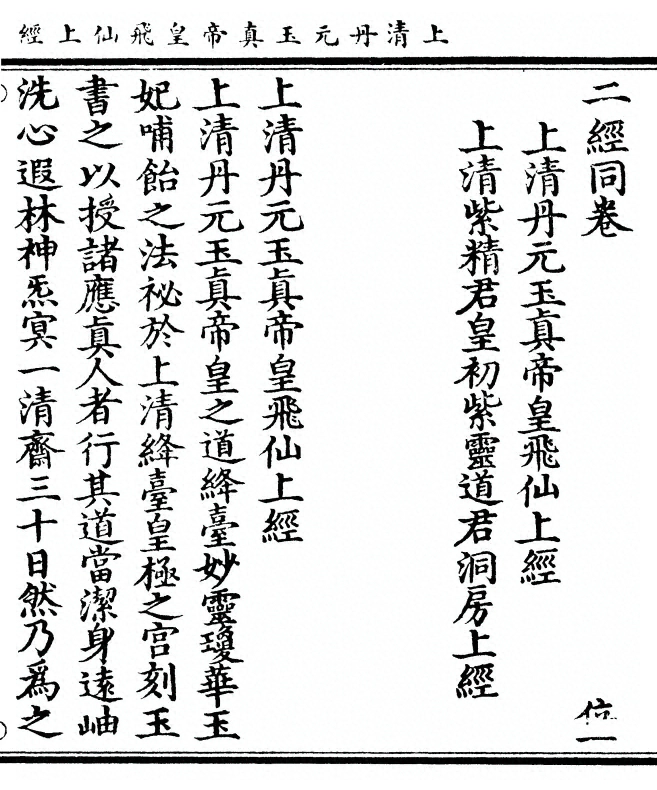 上清丹元玉真帝皇飛仙上經
二經同卷
上清丹元玉真帝皇飛仙上經
上清紫精君皇初紫靈道君洞房上經
上清丹元玉真帝皇飛仙上經
上清丹元玉真帝皇之道絳臺妙靈瓊華玉
妃哺飴之法祕於上清絳臺皇極之宮刻玉
書之以授諸應真人者行其道當潔身遠岫
洗心遐林神炁冥一清齋三十日然乃為之